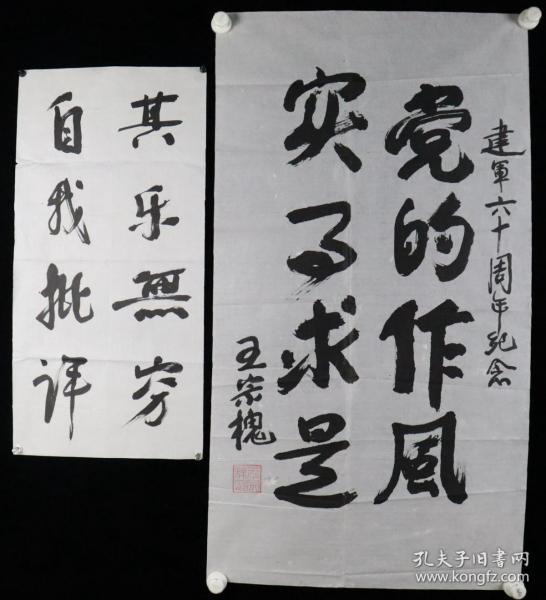 建軍六十周年纪念
党的作风
实事求是
王宗槐
其乐無穷
自我批评
孔夫子旧书网
www.kongfz.com